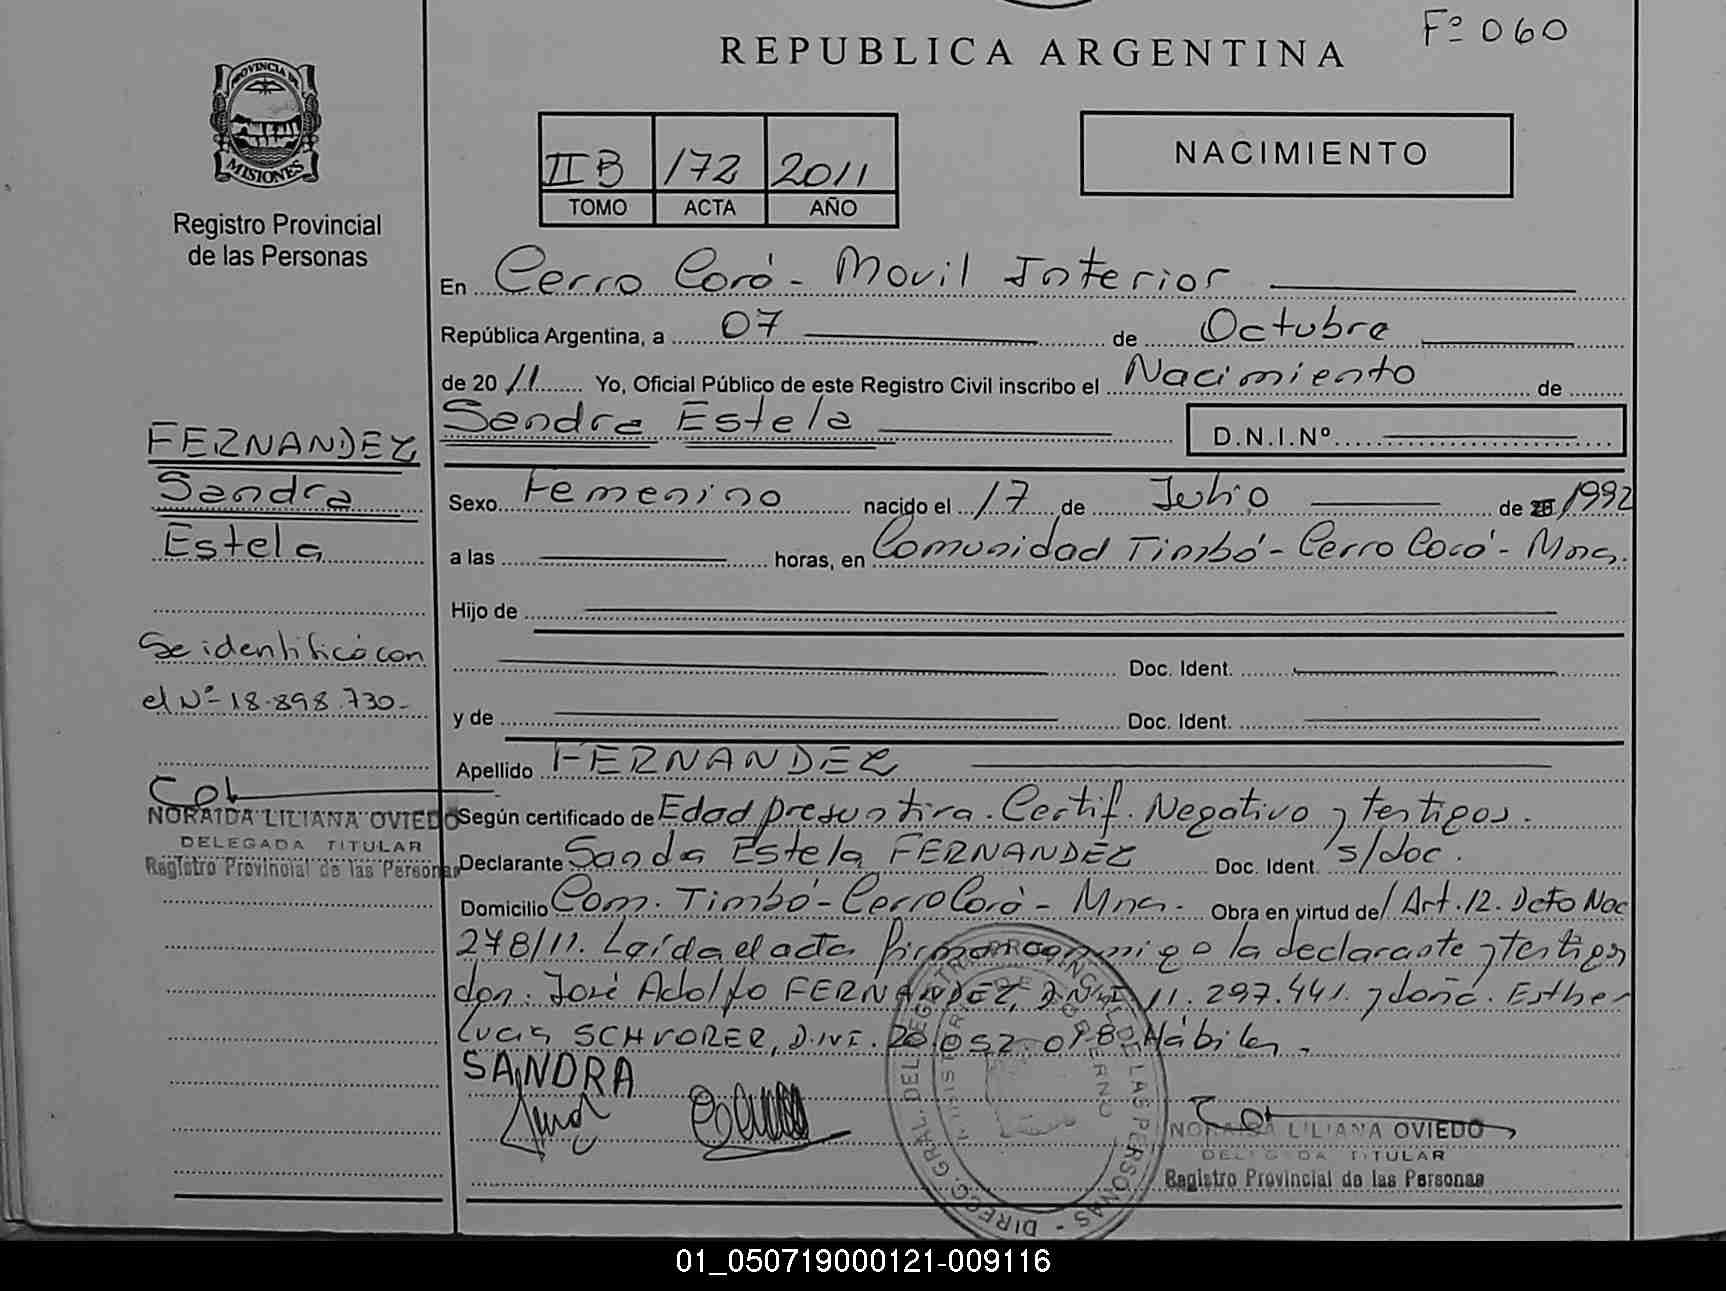 Fº 060
REPUBLICA ARGENTINA
PROVINCIA DE
MISIONES
Registro Provincial
de las Personas
II B 172 2011
TOMO ACTA AÑO
NACIMIENTO
En Cerro Corá - Movil Interior
República Argentina, a 07 de Octubre
de 2011 Yo, Oficial Público de este Registro Civil inscribo el Nacimiento de
Sandra Estela D.N.I.Nº
FERNANDEZ
Sandra
Estela
Se identificó con
el Nº 18.898.730-
Sexo Femenino nacido el 17 de Julio de 1992
a las horas, en Comunidad Timbó - Cerro Corá - Mns.
Hijo de
Doc. Ident.
y de Doc. Ident.
Apellido FERNANDEZ
Según certificado de Edad presuntiva. Certif. Negativo y testigos.
Declarante Sanda Estela FERNANDEZ Doc. Ident. s/doc.
Domicilio Com. Timbó - Cerro Corá - Mns. Obra en virtud de/Art. 12. Dcto Nac
278/11. Leída el acta firman conmigo la declarante y testigos
don. José Adolfo FERNANDEZ, D.N.I. 11.297.441. y doña. Esther
Lucia SCHVORER, D.N.I. 20.052.098 Hábiles.
SANDRA
NORAIDA LILIANA OVIEDO
DELEGADA TITULAR
Registro Provincial de las Personas
NORAIDA LILIANA OVIEDO
DELEGADA TITULAR
Registro Provincial de las Personas
DIRECC. GRAL. DEL REGISTRO PROVINCIAL DE LAS PERSONAS
MINISTERIO DE GOBIERNO
01_050719000121-009116